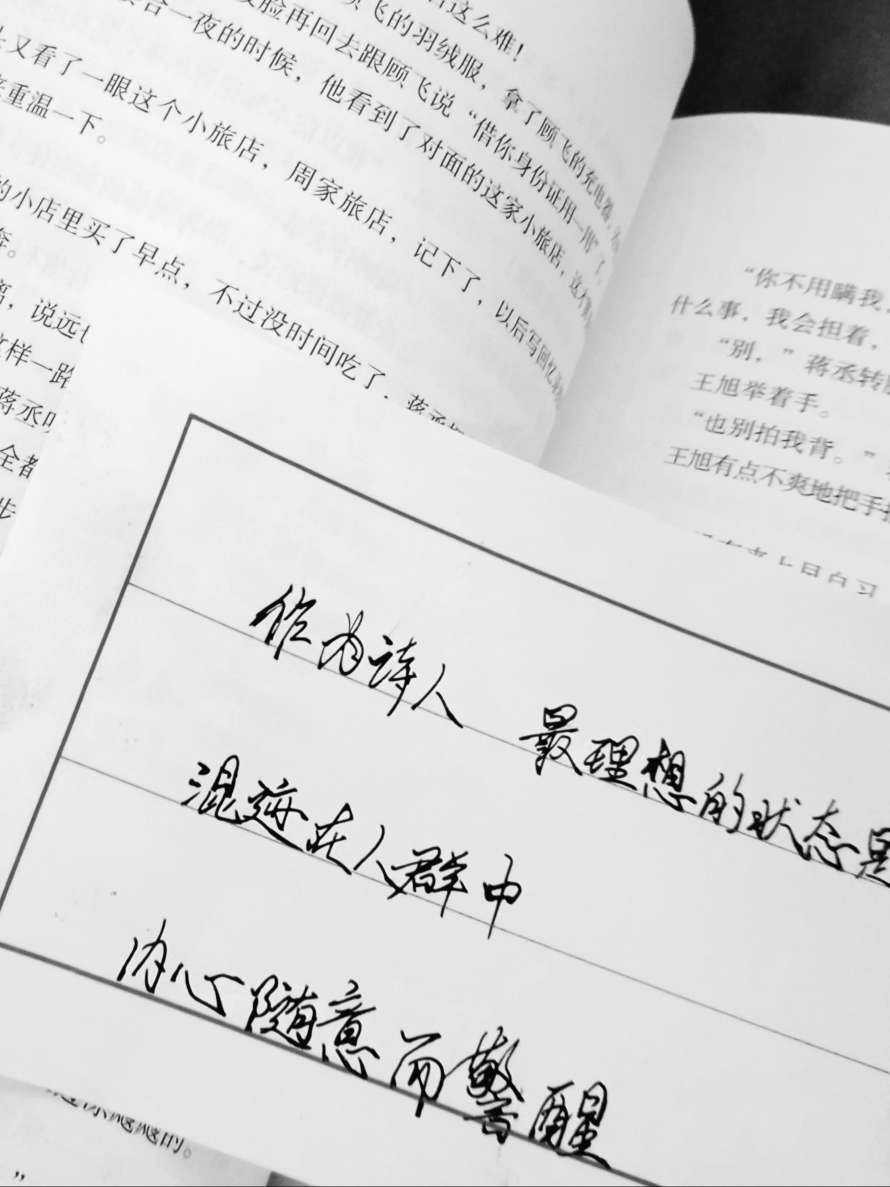 这么难！
脸再回去跟顾飞说“借你身份证用一用”了，
飞的羽绒服，拿了顾飞的充电器，
合一夜的时候，他看到了对面的这家小旅店，这
又看了一眼这个小旅店，周家旅店，记下了，以后写回忆
重温一下。
的小店里买了早点，不过没时间吃了，蒋丞
奔。
离，说远
这样一路
蒋丞
全都
步
“你不用瞒我
什么事，我会担着，
“别，”蒋丞转
王旭举着手。
“也别拍我背。”
王旭有点不爽地把手
作为诗人 最理想的状态是
混迹在人群中
内心随意而警醒
的。
”